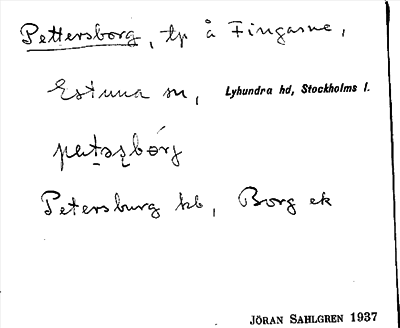 Pettersborg, tp å Fingarne,
Estuna sn, Lyhundra hd, Stockholms l.
Petersburg kb, Borg ek
JÖRAN SAHLGREN 1937